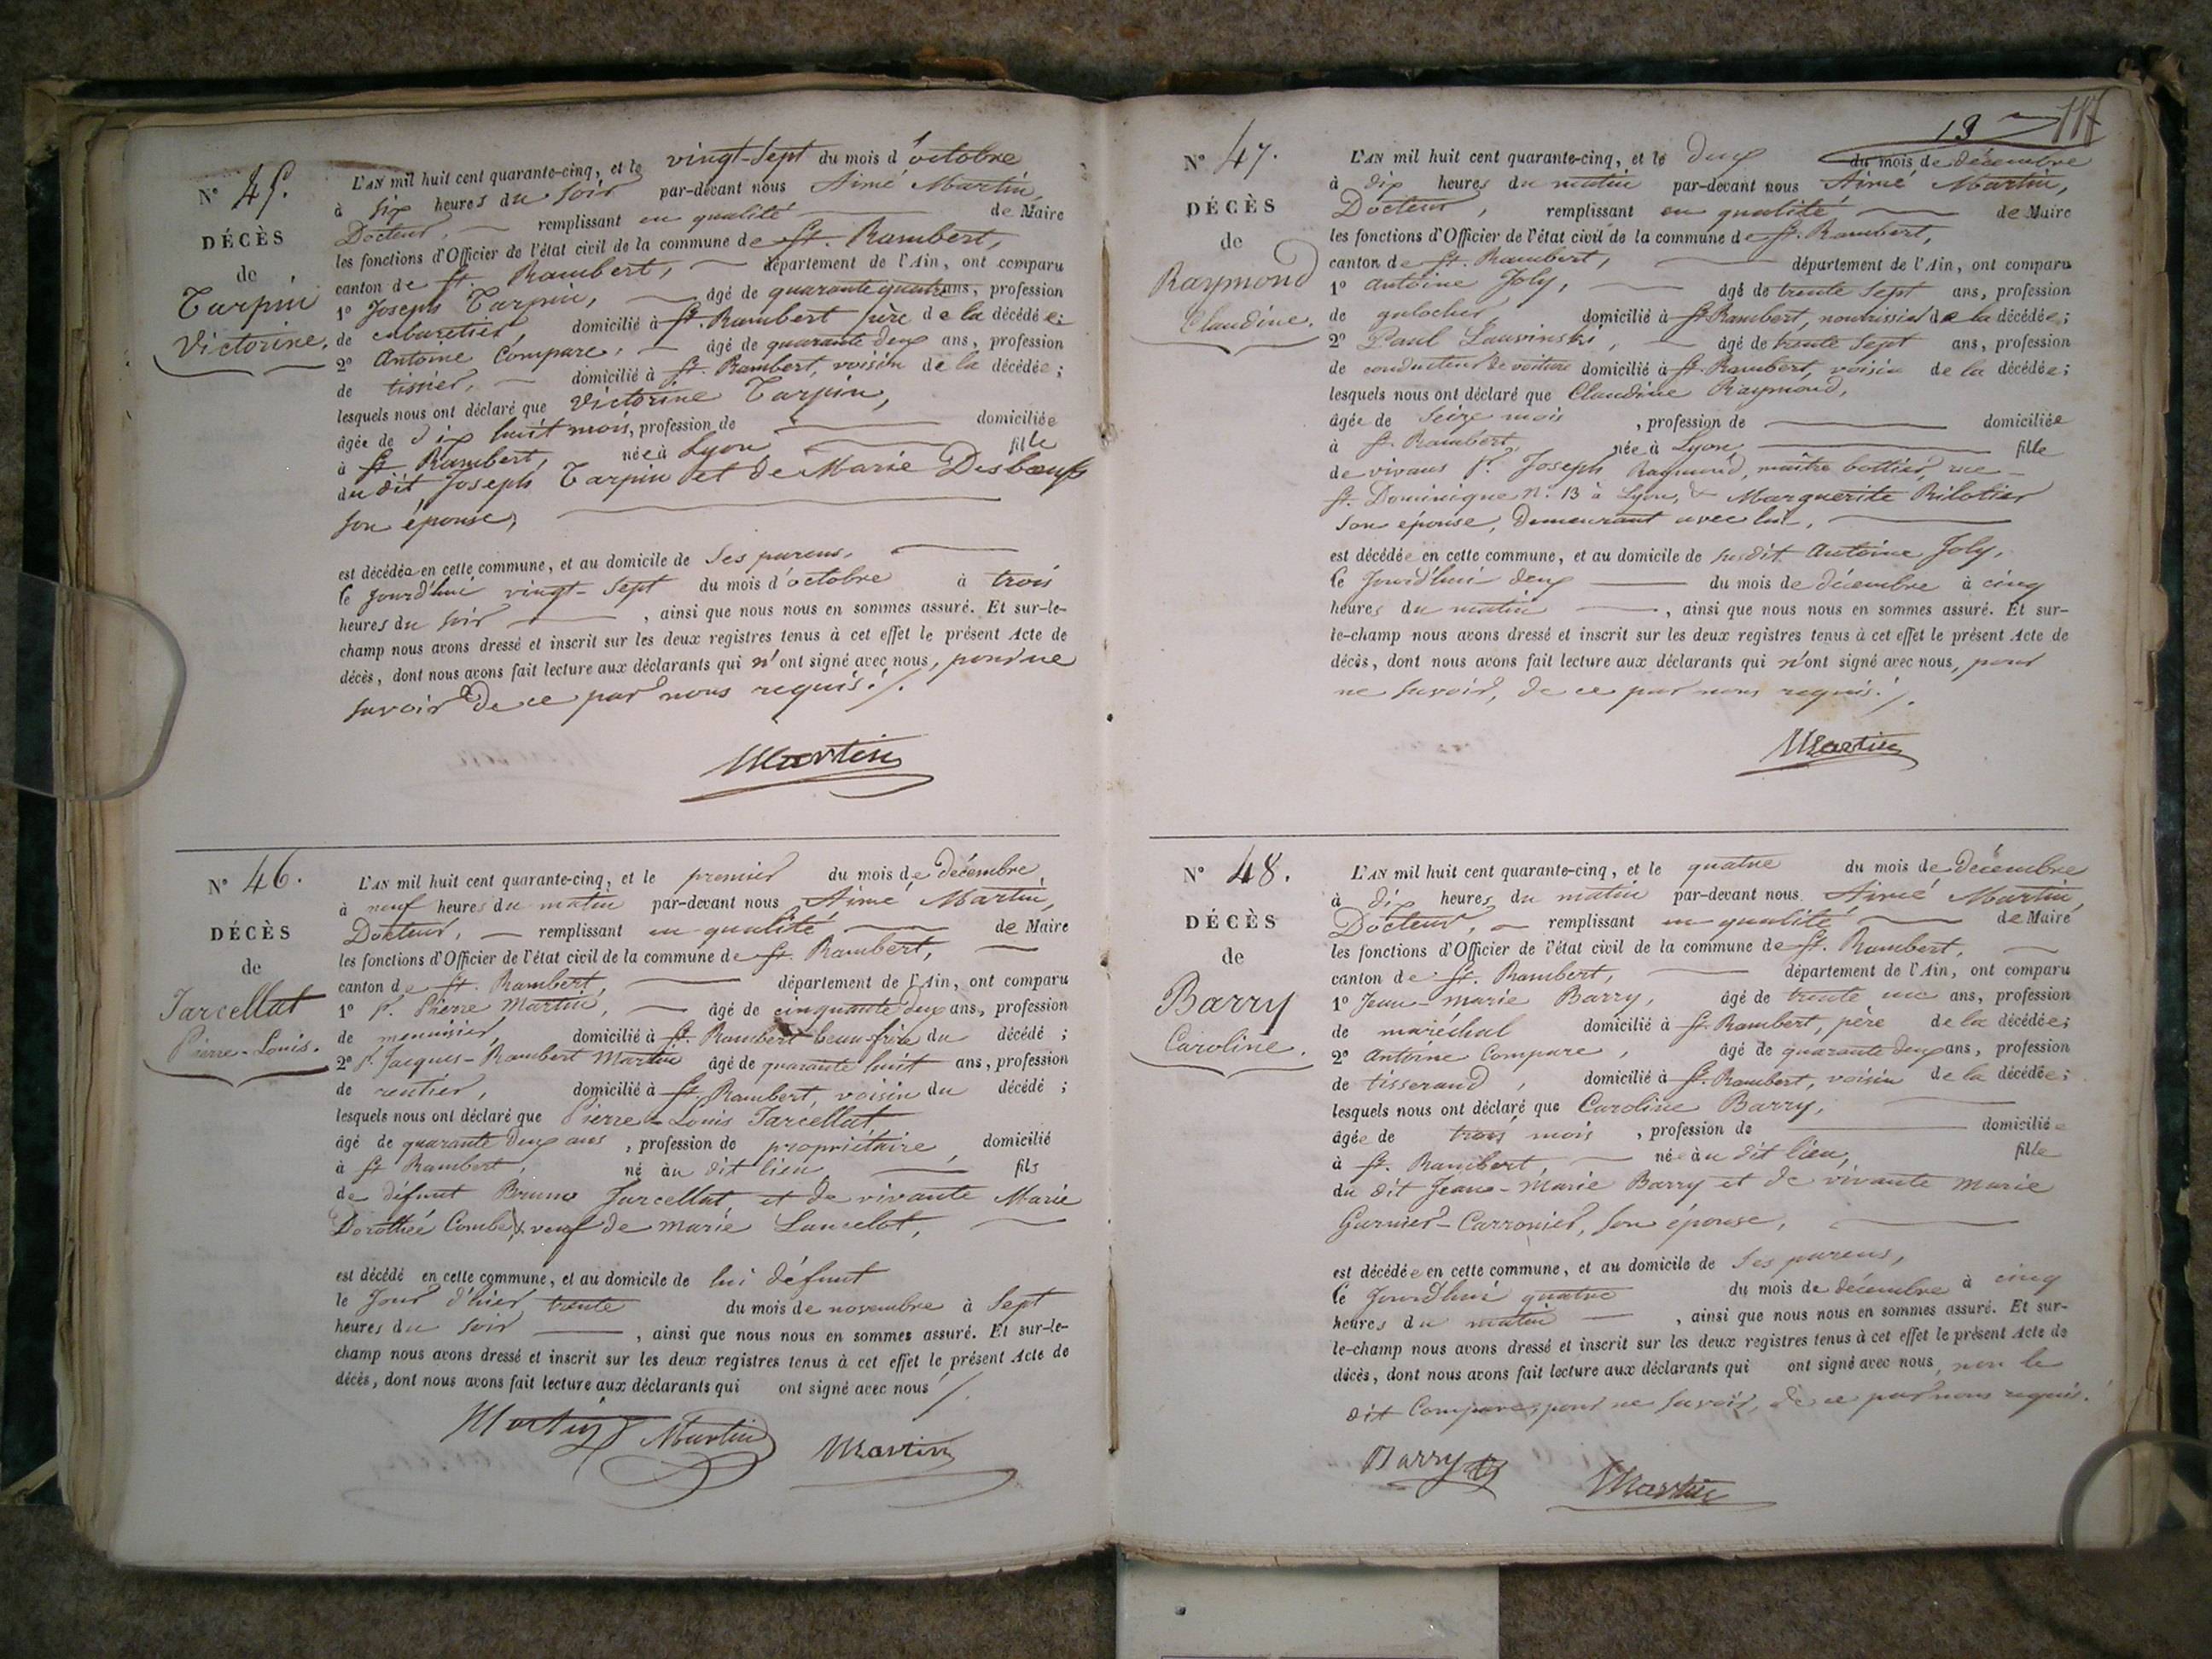 N° 45.
DÉCÈS
de
Tarpin
Victorine.
L'AN mil huit cent quarante-cinq, et le vingt-sept du mois d'octobre
à six heures du soir par-devant nous Aimé Martin,
Docteur, remplissant en qualité de Maire
les fonctions d'Officier de l'état civil de la commune de St. Rambert,
canton de St. Rambert, département de l'Ain, ont comparu
1° Joseph Tarpin, âgé de quarante quatre ans, profession
de cabaretier, domicilié à St. Rambert père de la décédée;
2° Antoine Compare, âgé de quarante deux ans, profession
de tissier, domicilié à St. Rambert, voisin de la décédée;
lesquels nous ont déclaré que Victorine Tarpin,
âgée de dix huit mois, profession de domiciliée
à St. Rambert, née à Lyon fille
du dit Joseph Tarpin et de Marie Desboeufs
son épouse,
est décédée en cette commune, et au domicile de ses parens,
le jourd'hui vingt-sept du mois d'octobre à trois
heures du soir, ainsi que nous nous en sommes assuré. Et sur-le-
champ nous avons dressé et inscrit sur les deux registres tenus à cet effet le présent Acte de
décès, dont nous avons fait lecture aux déclarants qui n'ont signé avec nous, pour ne
savoir de ce par nous requis./.
Martin
N° 46.
DÉCÈS
de
Jarcellat
Pierre-Louis.
L'AN mil huit cent quarante-cinq, et le premier du mois de décembre,
à neuf heures du matin par-devant nous Aimé Martin,
Docteur, remplissant en qualité de Maire
les fonctions d'Officier de l'état civil de la commune de St. Rambert,
canton de St. Rambert, département de l'Ain, ont comparu
1° sr. Pierre Martin, âgé de cinquante deux ans, profession
de menuisier, domicilié à St. Rambert beau-frère du décédé;
2° sr. Jacques-Rambert Martin âgé de quarante huit ans, profession
de rentier, domicilié à St. Rambert, voisin du décédé;
lesquels nous ont déclaré que Pierre-Louis Jarcellat
âgé de quarante deux ans, profession de propriétaire, domicilié
à St. Rambert, né au dit lieu, fils
de défunt Bruno Jarcellat et de vivante Marie
Dorothée Combe, & veuf de marie Lancelot,
est décédé en cette commune, et au domicile de lui défunt
le jour d'hier trente du mois de novembre à sept
heures du soir, ainsi que nous nous en sommes assuré. Et sur-le-
champ nous avons dressé et inscrit sur les deux registres tenus à cet effet le présent Acte de
décès, dont nous avons fait lecture aux déclarants qui ont signé avec nous /.
Martin Martin Martin
13
N° 47.
DÉCÈS
de
Raymond
Claudine.
L'AN mil huit cent quarante-cinq, et le deux du mois de décembre
à dix heures du matin par-devant nous Aimé Martin,
Docteur, remplissant en qualité de Maire
les fonctions d'Officier de l'état civil de la commune de St. Rambert,
canton de St. Rambert, département de l'Ain, ont comparu
1° antoine Joly, âgé de trente sept ans, profession
de galocher, domicilié à St. Rambert, nourrissier de la décédée;
2° Paul Lauvinski, âgé de trente sept ans, profession
de conducteur de voiture domicilié à St. Rambert, voisin de la décédée;
lesquels nous ont déclaré que Claudine Raymond,
âgée de seize mois, profession de domiciliée
à St. Rambert, née à Lyon, fille
de vivans sr. Joseph Raymond, maître bottier, rue
St. Dominique n°. 13 à Lyon, & Marguerite Rilotier
son épouse, demeurant avec lui,
est décédée en cette commune, et au domicile de susdit Antoine Joly,
le jourd'hui deux du mois de décembre à cinq
heures du matin, ainsi que nous nous en sommes assuré. Et sur-
le-champ nous avons dressé et inscrit sur les deux registres tenus à cet effet le présent Acte de
décès, dont nous avons fait lecture aux déclarants qui n'ont signé avec nous, pour
ne savoir, de ce par nous requis./.
Martin
N° 48.
DÉCÈS
de
Barry
Caroline.
L'AN mil huit cent quarante-cinq, et le quatre du mois de décembre
à dix heures du matin par-devant nous Aimé Martin,
Docteur, remplissant en qualité de Maire
les fonctions d'Officier de l'état civil de la commune de St. Rambert,
canton de St. Rambert, département de l'Ain, ont comparu
1° Jean-marie Barry, âgé de trente un ans, profession
de maréchal domicilié à St. Rambert, père de la décédée;
2° Antoine Compare, âgé de quarante deux ans, profession
de tisserand, domicilié à St. Rambert, voisin de la décédée;
lesquels nous ont déclaré que Caroline Barry,
âgée de trois mois, profession de domiciliée
à St. Rambert, née au dit lieu, fille
du dit Jean-Marie Barry et de vivante marie
Garnier-Carronier, son épouse,
est décédée en cette commune, et au domicile de ses parens,
le jourd'hui quatre du mois de décembre à cinq
heures du matin, ainsi que nous nous en sommes assuré. Et sur-
le-champ nous avons dressé et inscrit sur les deux registres tenus à cet effet le présent Acte de
décès, dont nous avons fait lecture aux déclarants qui ont signé avec nous, non le
dit Compare, pour ne savoir, de ce par nous requis./
Barry Martin